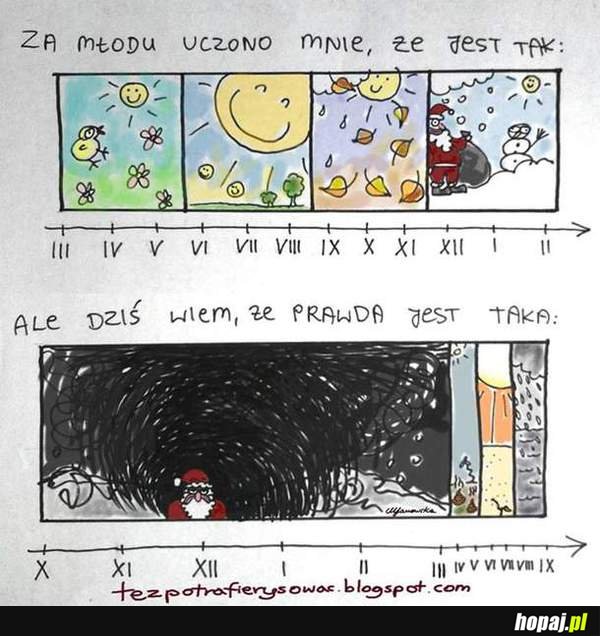 ZA MŁODU UCZONO MNIE, ŻE JEST TAK:
III IV V VI VII VIII IX X XI XII I II
ALE DZIŚ WIEM, ŻE PRAWDA JEST TAKA:
X XI XII I II III IV V VI VII VIII IX
tezpotrafierysowac.blogspot.com
hopaj.pl